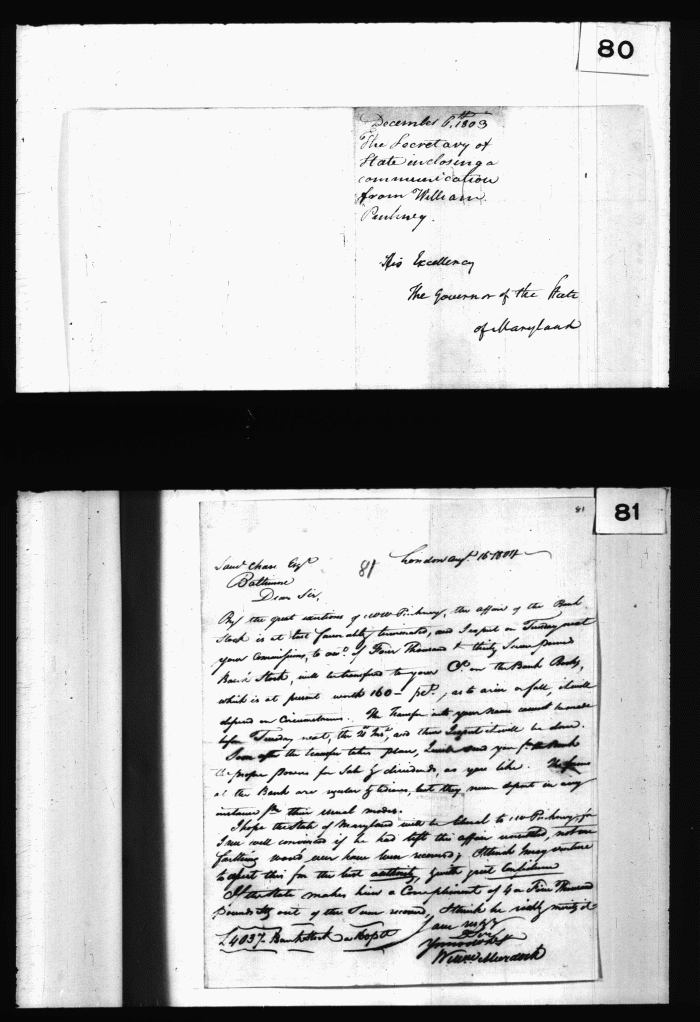 80
December 6th 1803
The Secretary of
State inclosing a
communication
from William
Pinkney.
His Excellency
The Governor of the State
of Maryland
81
81
Saml Chase Esqr
81
London Augt 16 1804
Baltimore
Dear Sir,
By the great exertions of Mr Pinkney, the affair of the Bank
Stock is at last favorably terminated, and I expect on Tuesday next
your Commissions, to amt of Four Thousand & thirty Seven pound
Bank Stock, will be transferred to your Ct on the Bank Books,
which is at present worth 160 – as to arise or fall, it will
depend on Circumstances. The Transfer into your Name cannot be made
before Tuesday next, the 21 Inst, and then I expect it will be done.
Soon after the transfer takes place, I will send you fm the Bank
the proper Powers for Sale & dividends, as you like. The forms
at the Bank are regular & tedious, but they never depart in any
instance fm their usual modes.
I hope the State of Maryland will be liberal to Mr Pinkney, for
I am well convinced if he had left this affair unsettled, not one
farthing would ever have been recovered; I think I may venture
to assert this for the best authority, & with great Confidence
If the State makes him a Compliment of 4 or Five Thousand
pounds out of the Sum received, I think he richly merits it
I am
£4037. Bank Stock
Dr Sir
Willm Murdock